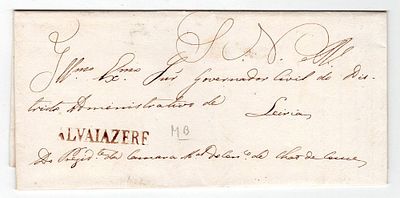 S. N. R.
Illmo Exmo Snr Governador Civil do Dis-
tricto Administrativo de
Leiria
ALVAIAZERE
MB
Do Presidte da Camara Mal do Conco de Chao de Couce